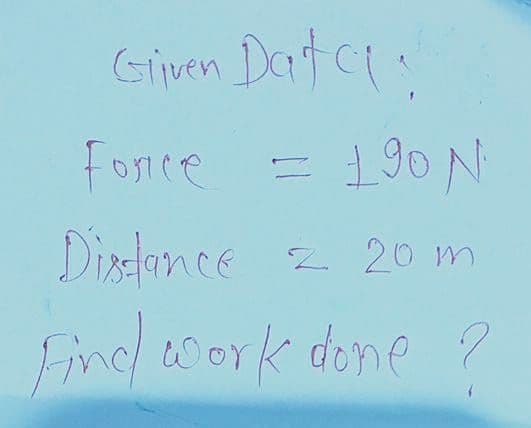 Given Data:
Force = 190 N
Distance = 20 m
Find work done ?